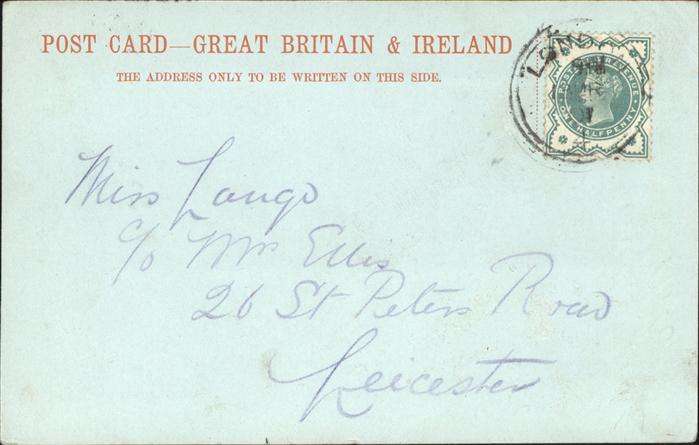 POST CARD—GREAT BRITAIN & IRELAND
THE ADDRESS ONLY TO BE WRITTEN ON THIS SIDE.
POSTAGE & REVENUE
ONE HALFPENNY
Miss Lange
c/o Mrs Ellis
26 St Peters Road
Leicester